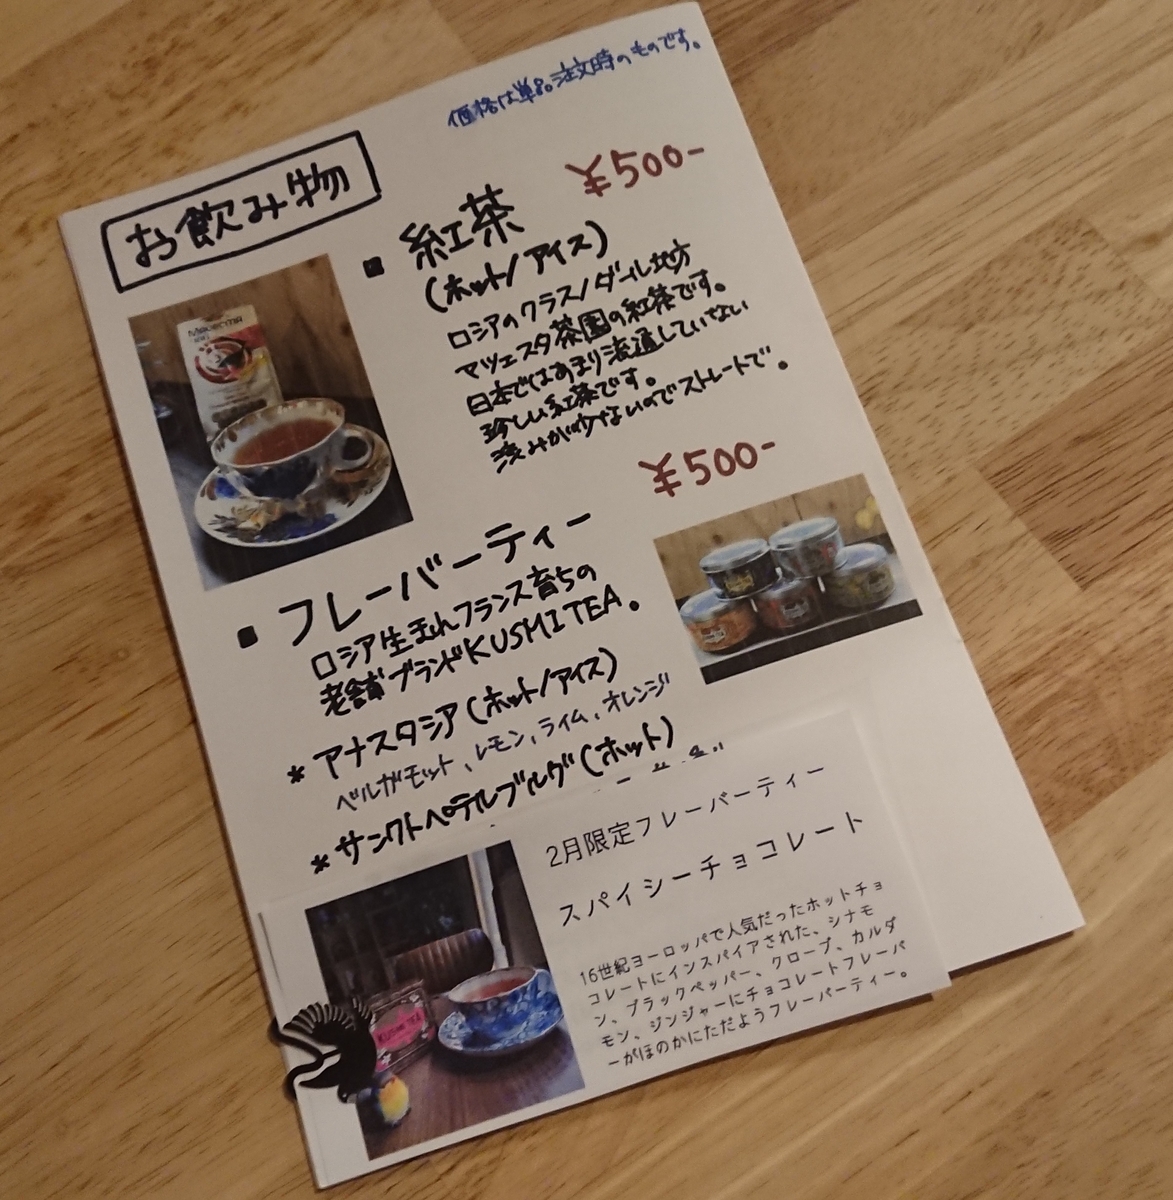 価格は単品注文時のものです。
お飲み物
¥500-
■ 紅茶
(ホット/アイス)
ロシアのクラスノダール地方
マツェスタ茶園の紅茶です。
日本ではあまり流通していない
珍しい紅茶です。
渋みが少ないのでストレートで。
¥500-
■ フレーバーティー
ロシア生まれフランス育ちの
老舗ブランドKUSMI TEA。
* アナスタシア(ホット/アイス)
ベルガモット、レモン、ライム、オレンジ
* サンクトペテルブルグ(ホット)
2月限定フレーバーティー
スパイシーチョコレート
16世紀ヨーロッパで人気だったホットチョ
コレートにインスパイアされた、シナモ
ン、ブラックペッパー、クローブ、カルダ
モン、ジンジャーにチョコレートフレーバ
ーがほのかにただようフレーバーティー。
KUSMI TEA